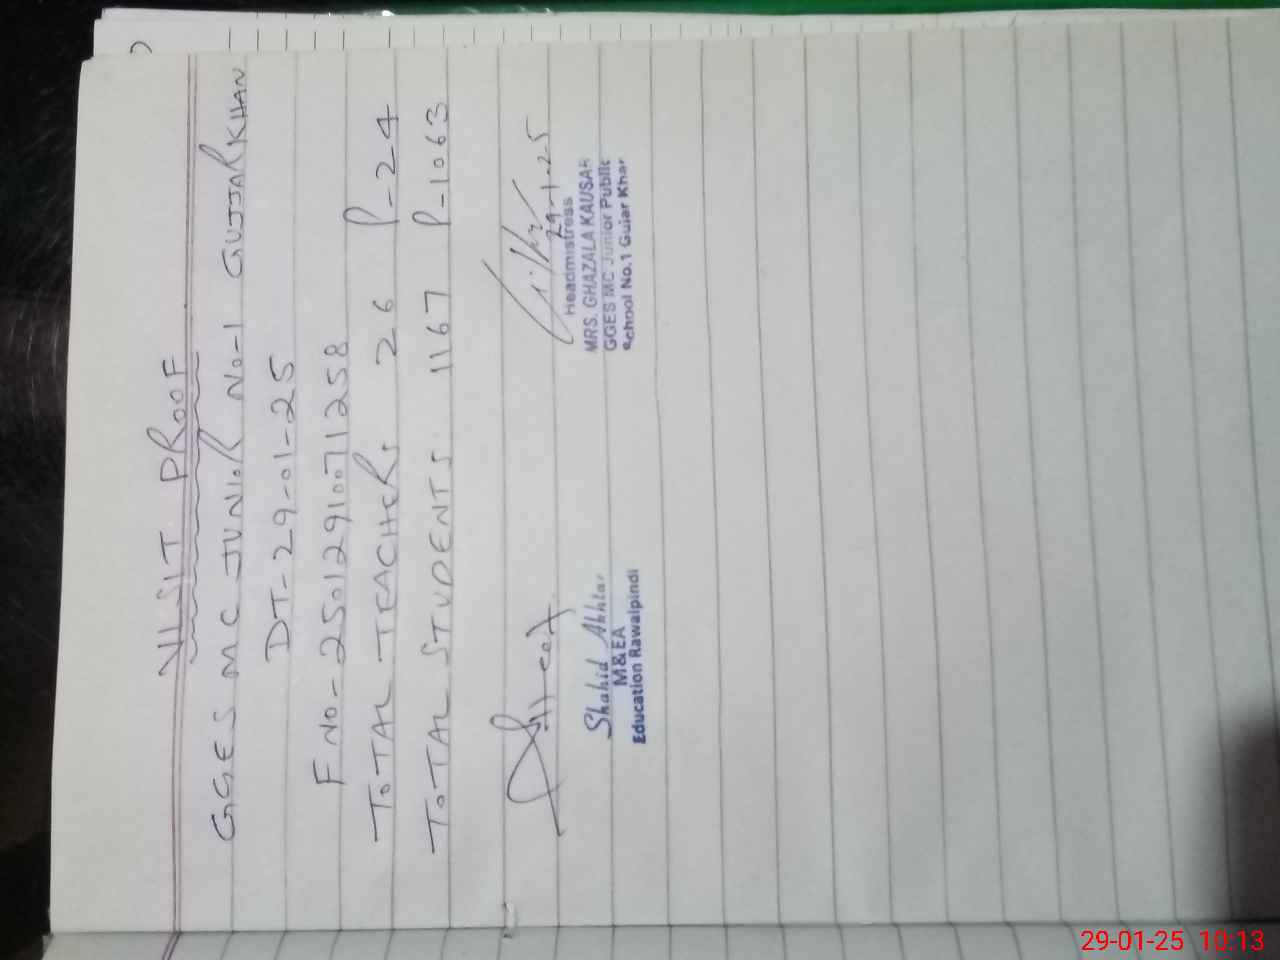 VISIT PROOF
GGES MC JUNIOR NO-1 GUJJAR KHAN
DT-29-01-25
F NO-2501291007 1258
TOTAL TEACHERS 26 P-24
TOTAL STUDENTS. 1167 P-1063
29-1-25
Shahid Akhtar
M&EA
Education Rawalpindi
Headmistress
MRS. GHAZALA KAUSAR
GGES MC Junior Public
School No.1 Gujar Khan
29-01-25 10:13